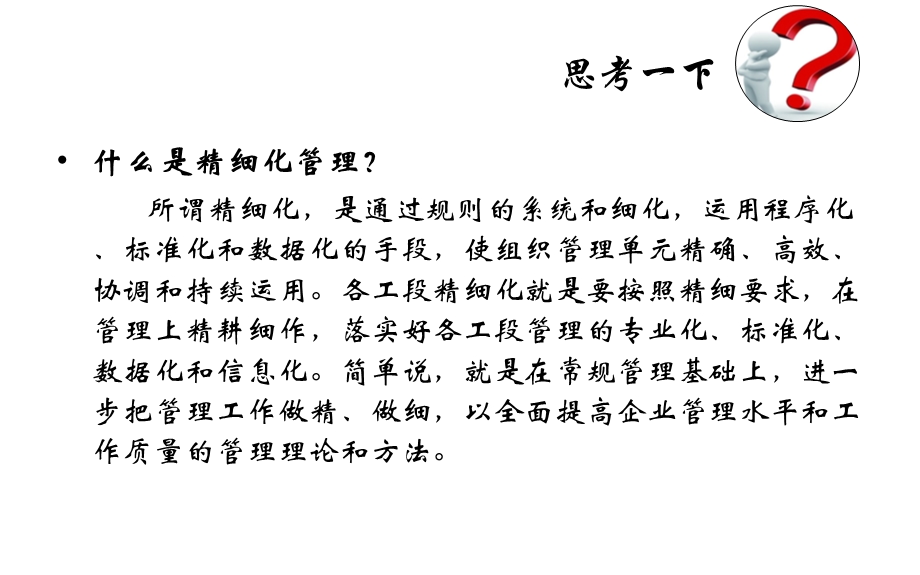 思考一下
• 什么是精细化管理？
所谓精细化，是通过规则的系统和细化，运用程序化
、标准化和数据化的手段，使组织管理单元精确、高效、
协调和持续运用。各工段精细化就是要按照精细要求，在
管理上精耕细作，落实好各工段管理的专业化、标准化、
数据化和信息化。简单说，就是在常规管理基础上，进一
步把管理工作做精、做细，以全面提高企业管理水平和工
作质量的管理理论和方法。